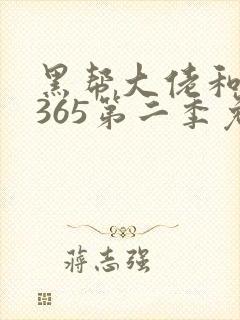 黑帮大佬和
365第二季免
蒋志强